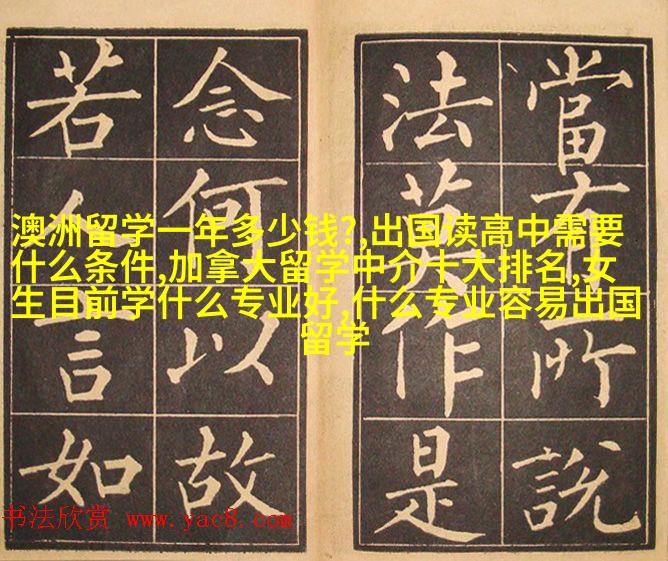 當有所說
法莫作是
念何以故
若人言如
澳洲留学一年多少钱?,出国读高中需要
什么条件,加拿大留学中介十大排名,女
生目前学什么专业好,什么专业容易出国
留学
书法欣赏 www.yac8.com